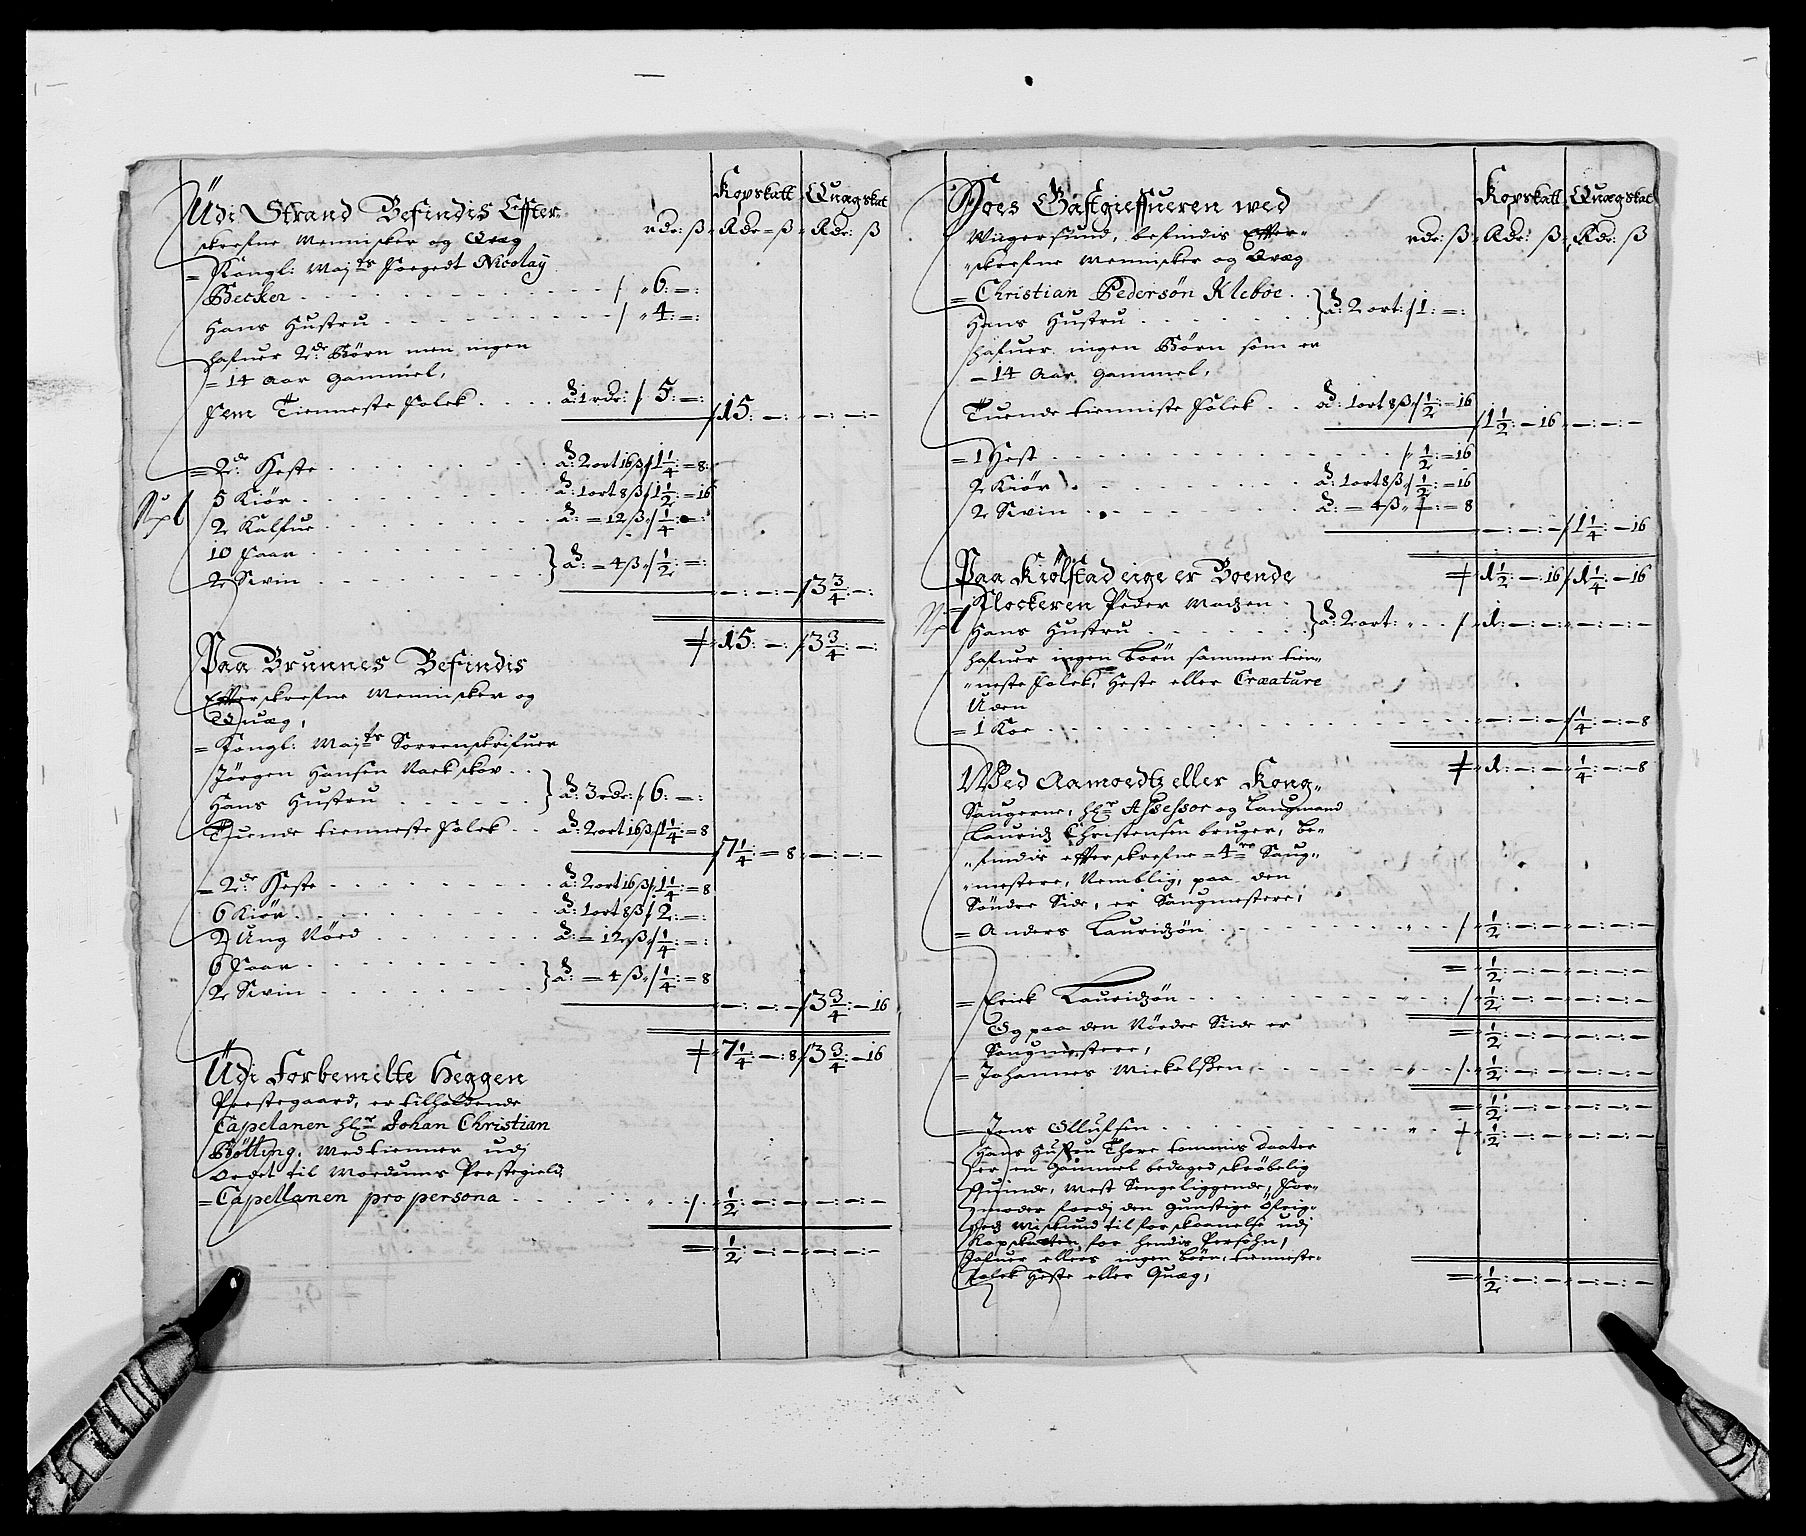 Kopskatt Quægskat
Udi Strand Befindis Effter
skrefne Mennisker og Qvæg rdr: ß Rdr = ß Rdr: ß
= Kongl: Maj:ts Foegedt Nicolaÿ
Becker . . . 6: = :
Hans Hustru . . . 4: = :
hafuer 2de Börn men ingen
= 14 Aar gammel,
fem Tienneste folck . . . à: 1 rdr: / 5: = :
15: — : — : — : —
= 2de Heste . . . à: 2 ort 16 ß / 1 1/4: = 8:
5 Kiör . . . à: 1 ort 8 ß / 1 1/2: = 16
2 Kalfue . . . à: = 12 ß / 1/4: = :
10 Faar . . .
2 Svin . . . } à: = 4 ß / 1/2: = :
— : — : — / 3 3/4: — :
15: — : / 3 3/4: — :
Paa Brunnes Befindis
Effterskrefne Mennisker og
Quæg,
= Kongl: Maj:ts Sorrenskrifuer
Jörgen Hansen . .
Hans Hustru . . . } à: 3 rdr: / 6: = :
Tuende tienneste folck . . à: 2 ort 16 ß / 1 1/4: = 8
7 1/4: = 8 — : — : —
= 2de Heste . . . à: 2 ort 16 ß / 1 1/4: = 8
6 Kiör . . . à: 1 ort 8 ß / 2: = :
2 Ung Nöed . . . à: = 12 ß / 1/4: = :
6 Faar . . .
2 Svin . . . } à: = 4 ß / 1/4: = 8
— : — : — / 3 3/4: — 16
7 1/4: — : 8 / 3 3/4: — 16
Udi Forbemelte Heggen
Prestegaard, er tilholdende
Capelanen hl:r Johan Christian
Bötting, Medtienner udj
ordet til Modums Prestegield
= Capellanen pro persona . . . 1/2: — : — : — : —
= 1/2: — : — : — : —
Kopskatt Quægskat
Hoes Gästgieffueren wed
Wiigersund, befindis Effter= rdr: ß Rdr: ß Rdr: ß
skrefne Mennisker og Qvæg
= Christian Pedersön Kleboe . .
Hans Hustru . . . } à: 2 ort: / 1: = :
hafuer ingen Börn som er
= 14 Aar gammel,
Tuende tienniste folck . . à: 1 ort 8 ß / 1/2: = 16
1 1/2: — 16 — : — : —
= 1 Hest . . . 1/2: = 16
2 Kiör . . . à: 1 ort 8 ß / 1/2: = 16
2 Svin . . . à: = 4 ß : = 8
— : — : — / 1 1/4: — 16
Paa Kiölstad eige er Boende 1 1/2: — : 16 / 1 1/4: — 16
= Klockeren Peder Madzen .
Hans Hustru . . . } à: 2 ort: / 1: — : — : — : —
hafuer ingen börn sammen tien=
neste folck, Heste eller Creature
Uden
= 1 Koe . . . — : — : — / 1/4: — : — 8
1: — : — 1/4: — : — 8
Wed Aamoedtz eller Kong=
Saugerne, hl:r Assessor og Laugmand
Lauridz Christensen bruger, be=
findis effterskrefne = 4re Saug=
mestere, Nemblig, paa den
Söndre Side, er Saugmestere,
= Anders Lauridzön . . . 1/2: — : — : — : —
= 1/2: — : — : — : —
= Erick Lauridzön . . . 1/2: — : — : — : —
Og paa den Nördre Siide er = 1/2: — : — : — : —
Saugmestere,
= Johannes Mickelssen . . . 1/2: — : — : — : —
= 1/2: — : — : — : —
= Jens Ollufsen . . . 1/2: — : — : — : —
Hans Hustru Thore Daater
er en Gammel bedaged skröbelig
Quinde, mest Sengeliggende, for=
moder fordj den gunstige
Miskund til forskaanelse udj
Kopskatten for hendis Persohn,
hafuer ellers ingen börn, tienneste=
folck Heste eller Quæg, = 1/2: — : — : — : —